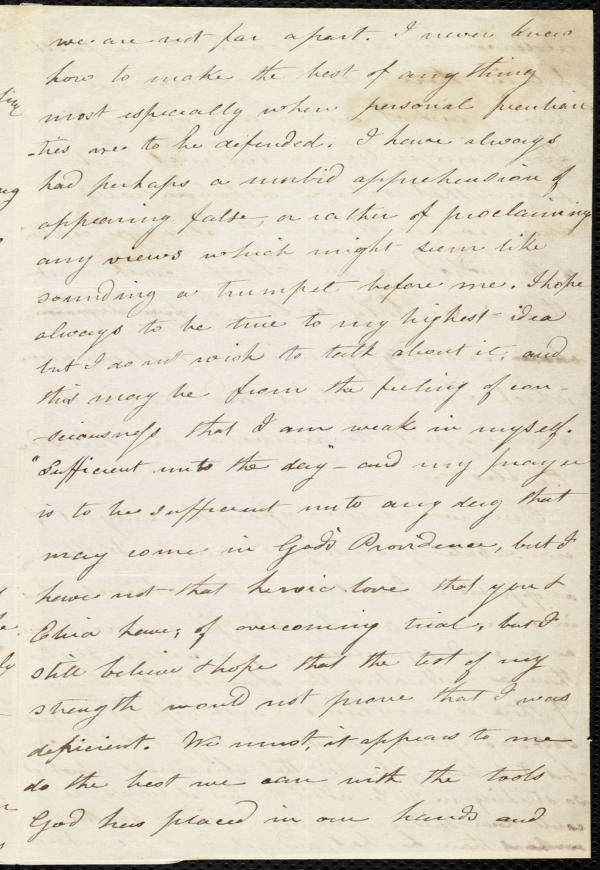 we are not far apart. I never knew
how to make the best of any thing
most especially when personal peculiari
-ties are to be defended. I have always
had perhaps a morbid apprehension of
appearing false, or rather of proclaiming
any views which might seem like
sounding a trumpet before me. I hope
always to be true to my highest idea
but I do not wish to talk about it, and
this may be from the feeling of con-
-sciousness that I am weak in myself.
"Sufficient unto the day" - and my prayer
is to be sufficient unto any day that
may come in God's Providence, but I
have not that heroic love that you &
Eliza have, of overcoming trial, but I
still believe & hope that the test of my
strength would not prove that I was
deficient. We must, it appears to me
do the best we can with the tools
God has placed in our hands and